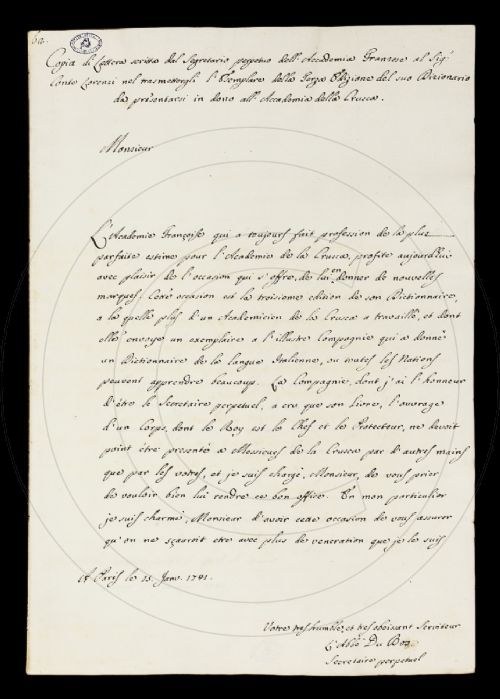 Copia di Lettera scritta dal Segretario perpetuo dell'Accademia Franzese al Sigr
Conte Lorenzi nel trasmettergli l'Esemplare della Terza Edizione del suo Dizionario
da presentarsi in dono all'Accademia della Crusca.
Monsieur
L'Academie Françoise qui a toujours fait profession de la plus
parfaite estime pour l'Academie de la Crusca, profite aujourdhui
avec plaisir de l'occasion qui s'offre, de lui en donner de nouvelles
marques. Cette occasion est la troisieme edition de son Dictionnaire,
a la quelle plus d'un Academicien de la Crusca a travaillé, et dont
elle envoye un exemplaire a l'illustre Compagnie qui a donné
un Dictionnaire de la langue Italienne, ou toutes les Nations
peuvent apprendre beaucoup. La Compagnie, dont j'ai l'honneur
d'étre le Secretaire perpetuel, a cru que son Livre, l'ouvrage
d'un Corps, dont le Roy est le Chef et le Protecteur, ne devoit
point étre presenté a Messieurs de la Crusca par d'autres mains
que par les votres, et je suis chargé, Monsieur, de vous prier
de vouloir bien lui rendre ce bon office. En mon particulier
je suis charmé, Monsieur d'avoir cette occasion de vous assurer
qu'on ne sçauroit etre avec plus de veneration que je le suis
A Paris le 15. Janv. 1741.
Votre tres humble, et tres obeissant Serviteur
L'Abbé Du Bos
Secretaire perpetuel